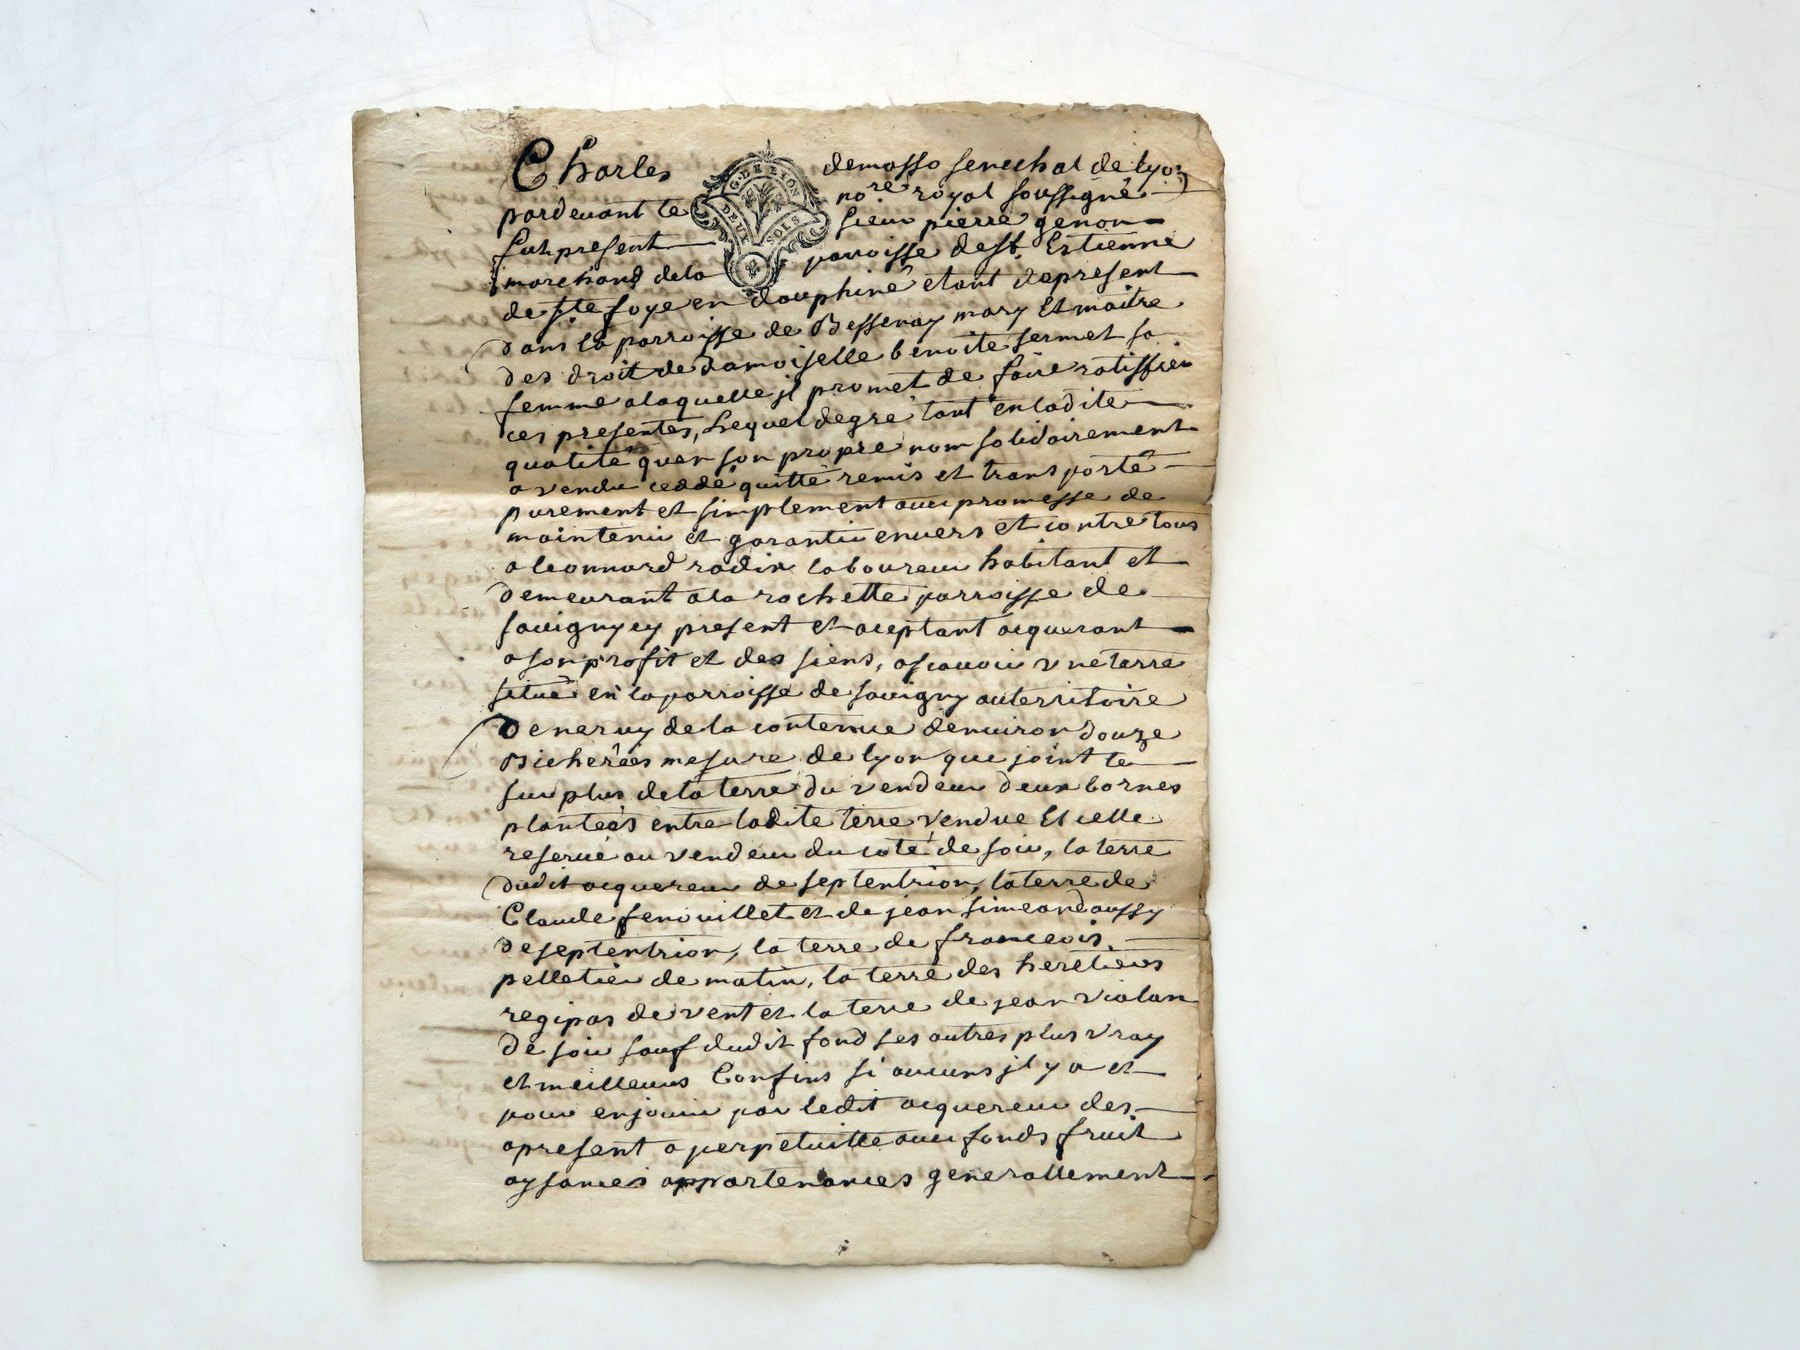 Charles demasso senechal de lyon
G. DE LYON
DEUX SOLS
pardevant le no.re royal soussigné
fut present sieur pierre genon
marchand dela parroisse de st. Estienne
de ste foye en dauphiné etant depresent
dans la parroisse de Bessenay mary Et maitre
des droit de damoiselle benoite fermet sa
femme alaquelle jl promet de faire ratiffier
ces presentes, Lequel degré tant en ladite
qualité quen son propre nom solidairement
a vendu ceddé quitté remis et transporté
purement et simplement avec promesse de
maintenir et garantir envers et contre tous
a leonnard radix laboureur habitant et
demeurant ala rochette parroisse de
savigny cy present et aceptant aquerant
a son profit et des siens, ascavoir vne terre
situé en la parroisse de savigny auterritoire
de nervy de la contenue denviron douze
Bicherées mesure de lyon que joint le
surplus dela terre du vendeur deux bornes
plantées entre ladite terre vendue Et celle
reservé au vendeur du coté de soir, la terre
dudit acquereur de septentrion, laterre de
Claude fenouillet et de jean simeand aussy
de septentrion, la terre de francois
pelletier de matin, la terre des heretiers
regipas de vent et la terre de jean vialan
de soir sauf dudit fond ses autres plus vray
et meilleurs Confins si aucuns jl y a et
pour en jouir par ledit acquereur des
apresent a perpetuitté avec fonds fruit
aysances appartenances generallement